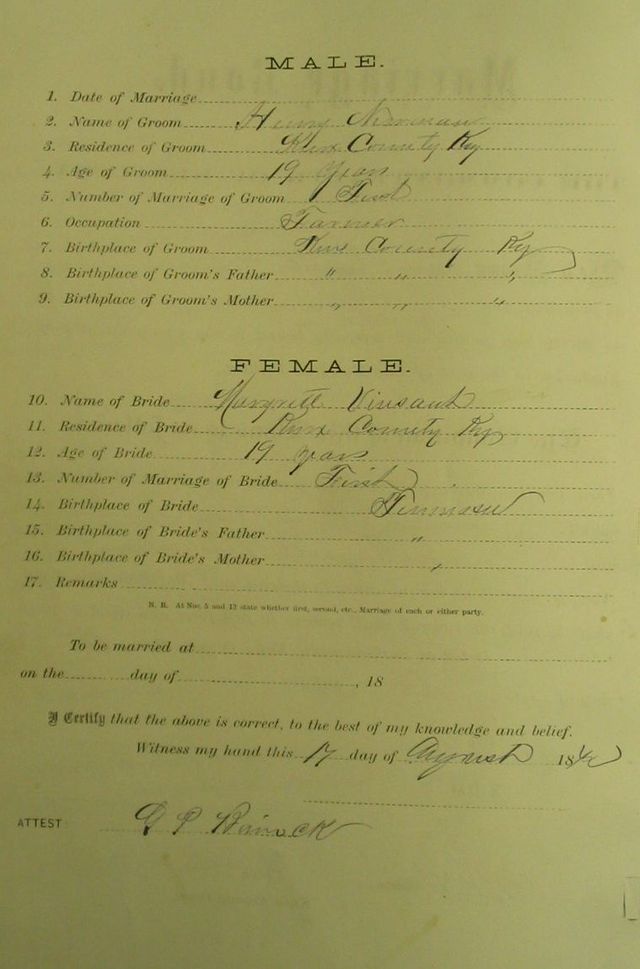 MALE.
1. Date of Marriage
2. Name of Groom Henry
3. Residence of Groom Knox County Ky
4. Age of Groom 19 years
5. Number of Marriage of Groom First
6. Occupation Farmer
7. Birthplace of Groom Knox County Ky
8. Birthplace of Groom's Father " " "
9. Birthplace of Groom's Mother " " "
FEMALE.
10. Name of Bride Vinsant
11. Residence of Bride Knox County Ky
12. Age of Bride 19 years
13. Number of Marriage of Bride First
14. Birthplace of Bride Tennessee
15. Birthplace of Bride's Father "
16. Birthplace of Bride's Mother "
17. Remarks
N. B. At Nos. 5 and 13 state whether first, second, etc., Marriage of each or either party.
To be married at
on the day of , 18
I Certify that the above is correct, to the best of my knowledge and belief.
Witness my hand this 17 day of August 18
ATTEST: G P